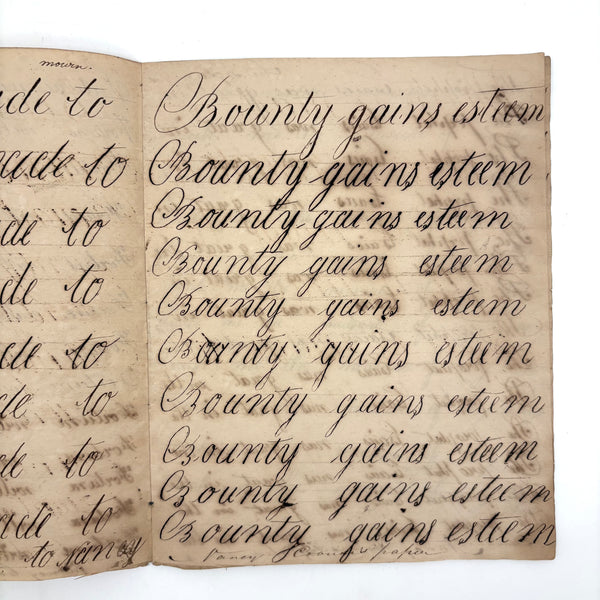 mourn.
ade to
cade to
de to
de to
de to
de to
de to
ade to
to
Bounty gains esteem
Bounty gains esteem
Bounty gains esteem
Bounty gains esteem
Bounty gains esteem
Bounty gains esteem
Bounty gains esteem
Bounty gains esteem
Bounty gains esteem
Bounty gains esteem
paper